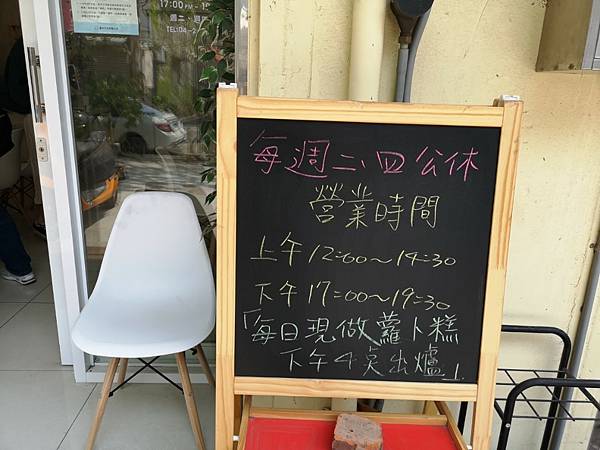 17:00PM - 1
週二、週
TEL:04-2
每週二、四公休
營業時間
上午12:00~14:30
下午17:00~19:30
「每日現做蘿卜糕
下午4点出爐」